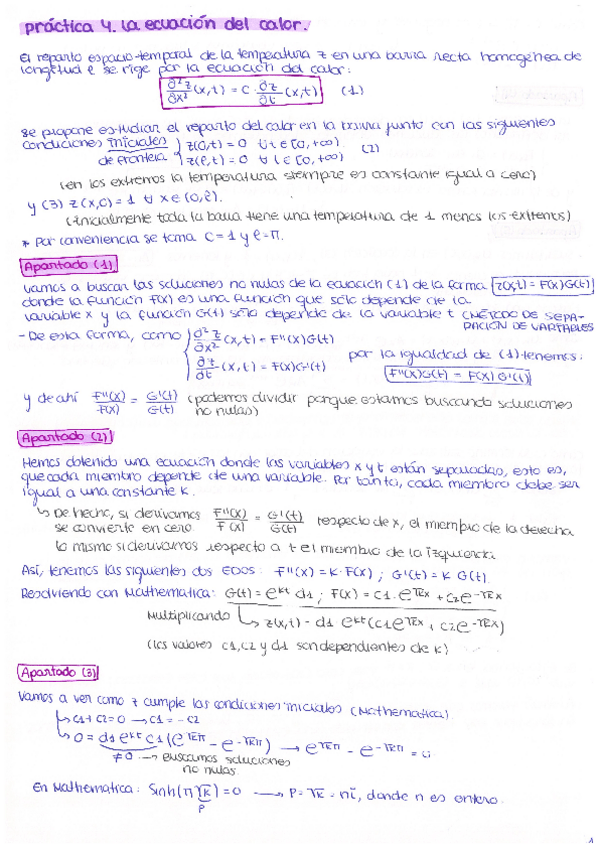 práctica 4. La ecuación del calor.
El reparto espacio-temporal de la temperatura z en una barra recta homogénea de
longitud ℓ se rige por la ecuación del calor:
∂²z/∂x² (x,t) = C · ∂z/∂t (x,t) (1)
se propone estudiar el reparto del calor en la barra junto con las siguientes
condiciones iniciales { z(0,t) = 0 ∀ t ∈ [0,+∞)
de frontera { z(ℓ,t) = 0 ∀ t ∈ [0,+∞) (2)
(en los extremos la temperatura siempre es constante igual a cero)
y (3) z(x,0) = 1 ∀ x ∈ (0,ℓ).
(inicialmente toda la barra tiene una temperatura de 1 menos los extremos)
* Por conveniencia se toma C = 1 y ℓ = π.
Apartado (1)
Vamos a buscar las soluciones no nulas de la ecuación (1) de la forma z(x,t) = F(x)G(t)
donde la función F(x) es una función que sólo depende de la
variable x y la función G(t) sólo depende de la variable t (MÉTODO DE SEPA-
RACIÓN DE VARIABLES
- De esta forma, como { ∂²z/∂x² (x,t) = F''(x)G(t)
∂z/∂t (x,t) = F(x)G'(t)
por la igualdad de (1) tenemos:
F''(x)G(t) = F(x)G'(t)
y de ahí F''(x)/F(x) = G'(t)/G(t) (podemos dividir porque estamos buscando soluciones
no nulas)
Apartado (2)
Hemos obtenido una ecuación donde las variables x y t están separadas, esto es,
que cada miembro depende de una variable. Por tanto, cada miembro debe ser
igual a una constante K.
↳ De hecho, si derivamos F''(x)/F(x) = G'(t)/G(t) respecto de x, el miembro de la derecha
se convierte en cero
lo mismo si derivamos respecto a t el miembro de la izquierda
Así, tenemos las siguientes dos EDOs: F''(x) = K·F(x) ; G'(t) = K G(t).
Resolviendo con Mathematica: G(t) = e^{kt} d1 ; F(x) = C1·e^{√k x} + C2 e^{-√k x}
Multiplicando ↳ z(x,t) = d1 e^{kt} (C1 e^{√k x} + C2 e^{-√k x})
(los valores C1, C2 y d1 son dependientes de K)
Apartado (3)
Vamos a ver como z cumple las condiciones iniciales (Mathematica)
↳ C1 + C2 = 0 → C1 = - C2
↳ 0 = d1 e^{kt} C1 (e^{√k π} - e^{-√k π}) → e^{√k π} - e^{-√k π} =
≠ 0 → buscamos soluciones
no nulas.
En Mathematica: Sinh(π √k) = 0 → P = √k = ni, donde n es entero.
P
1